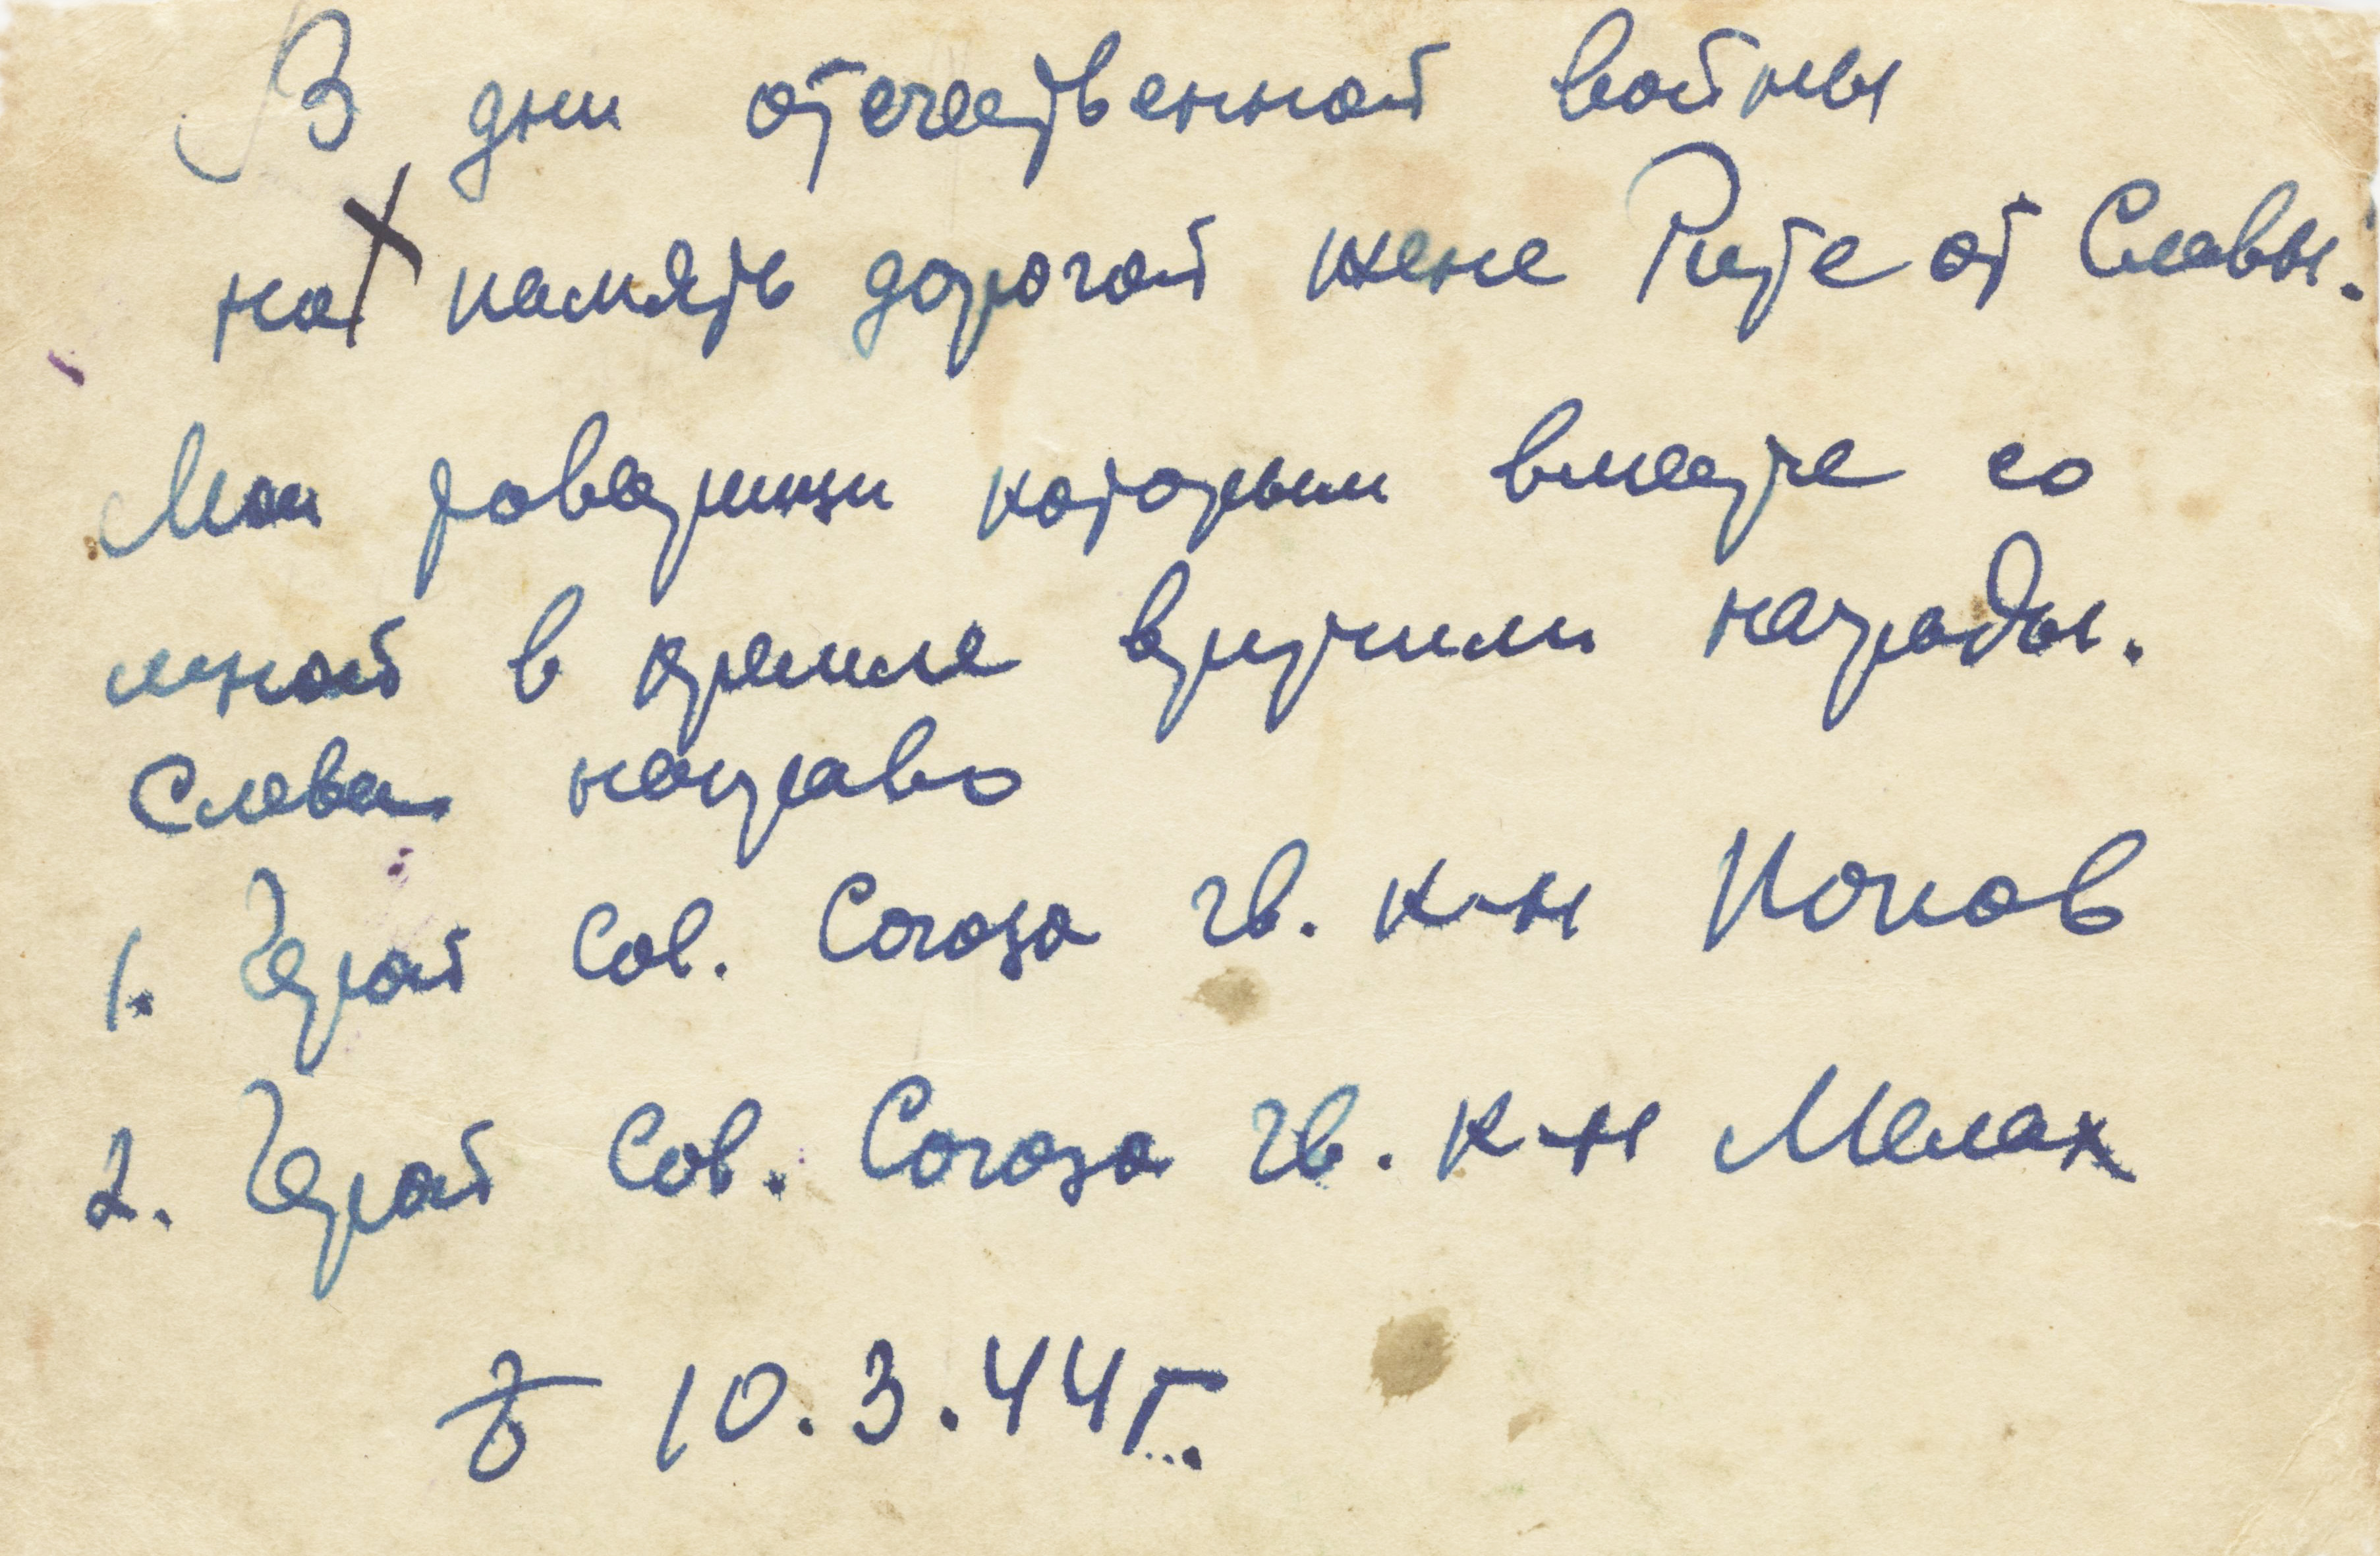 В дни отечественной войны
на память дорогой жене Рите от Славы.
Мои товарищи которым вместе со
мной в кремле вручили награды.
Слева направо
1. Герой Сов. Союза гв. к-н Попов
2. Герой Сов. Союза гв. к-н Мелах
10.3.44г.